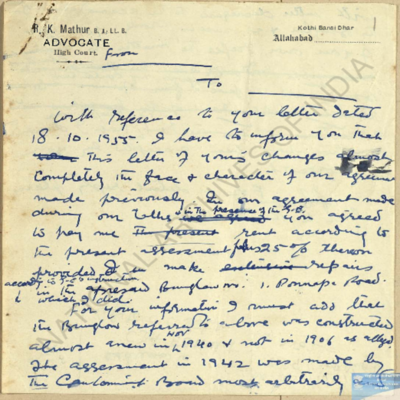 R. K. Mathur B. A; LL. B.
ADVOCATE
High Court.
From
Kothi Bansi Dhar
Allahabad
1
To
With reference to your letter dated
18.10.1955. I have to inform you that
this letter of yours changes almost
completely the face & character of our agreement
made previously. In our agreement made
during our talks in the presence of the G.B. you agreed
to pay me the present rent according to
the present assessment plus 25% thereon
provided I make extensive repairs
in the Bungalow no: 1. Ponnapa Road.
which I did.
For your information I must add that
the Bungalow referred to above was constructed
almost anew in Nov 1940 & not in 1906 as alleged
Its assessment in 1942 was made by
The Cantonment Board most arbitrarily and
NATIONAL ARCHIVES OF INDIA